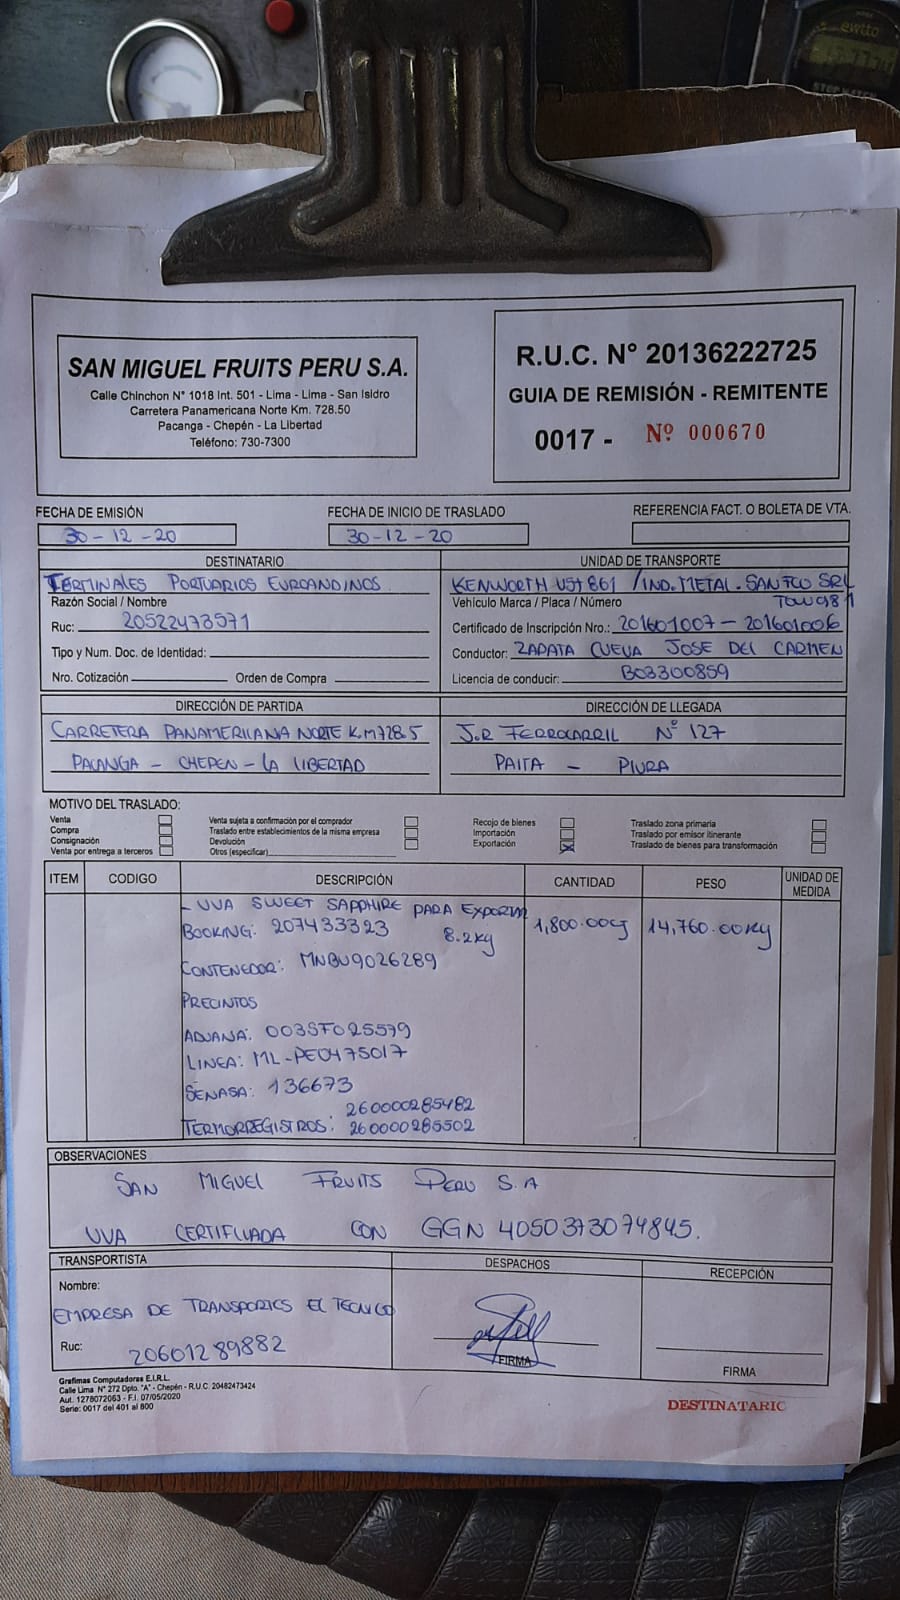 ewtto
SAN MIGUEL FRUITS PERU S.A.
Calle Chinchon N° 1018 Int. 501 - Lima - Lima - San Isidro
Carretera Panamericana Norte Km. 728.50
Pacanga - Chepén - La Libertad
Teléfono: 730-7300
R.U.C. N° 20136222725
GUIA DE REMISIÓN - REMITENTE
0017 - Nº 000670
FECHA DE EMISIÓN
30-12-20
FECHA DE INICIO DE TRASLADO
30-12-20
REFERENCIA FACT. O BOLETA DE VTA.
DESTINATARIO
TERMINALES PORTUARIOS EUROANDINOS
Razón Social / Nombre
Ruc: 20522473571
Tipo y Num. Doc. de Identidad:
Nro. Cotización Orden de Compra
UNIDAD DE TRANSPORTE
KENWORTH /IND. METAL. SANFCO SRL
Vehículo Marca / Placa / Número
Certificado de Inscripción Nro.: 201601007 - 201601006
Conductor: ZAPATA CUEVA JOSE DEL CARMEN
Licencia de conducir: B03300859
DIRECCIÓN DE PARTIDA
CARRETERA PANAMERICANA NORTE K.M728.5
PACANGA - CHEPEN - LA LIBERTAD
DIRECCIÓN DE LLEGADA
J.R FERROCARRIL N° 127
PAITA - PIURA
MOTIVO DEL TRASLADO:
Venta
Compra
Consignación
Venta por entrega a terceros
Venta sujeta a confirmación por el comprador
Traslado entre establecimientos de la misma empresa
Devolución
Otros (especificar)
Recojo de bienes
Importación
Exportación
Traslado zona primaria
Traslado por emisor itinerante
Traslado de bienes para transformación
ITEM CODIGO DESCRIPCIÓN CANTIDAD PESO UNIDAD DE MEDIDA
- UVA SWEET SAPPHIRE PARA
BOOKING: 207433323 8.2kg 1,800.00 14,760.00Kg
CONTENEDOR: MNBU9026289
PRECINTOS
ADUANA: 003SF025579
LINEA: ML-PE0475017
SENASA: 136673
260000285482
TERMORREGISTROS: 260000285502
OBSERVACIONES
SAN MIGUEL FRUITS PERU S.A
UVA CERTIFICADA CON GGN 4050373074845.
TRANSPORTISTA
Nombre:
EMPRESA DE TRANSPORTES EL TECNICO
Ruc: 20601289882
DESPACHOS
FIRMA
RECEPCIÓN
FIRMA
Grafimas Computadoras E.I.R.L.
Calle Lima N° 272 Dpto. "A" - Chepén - R.U.C. 20482473424
Aut. 1278072063 - F.I. 07/05/2020
Serie: 0017 del 401 al 800
DESTINATARIO